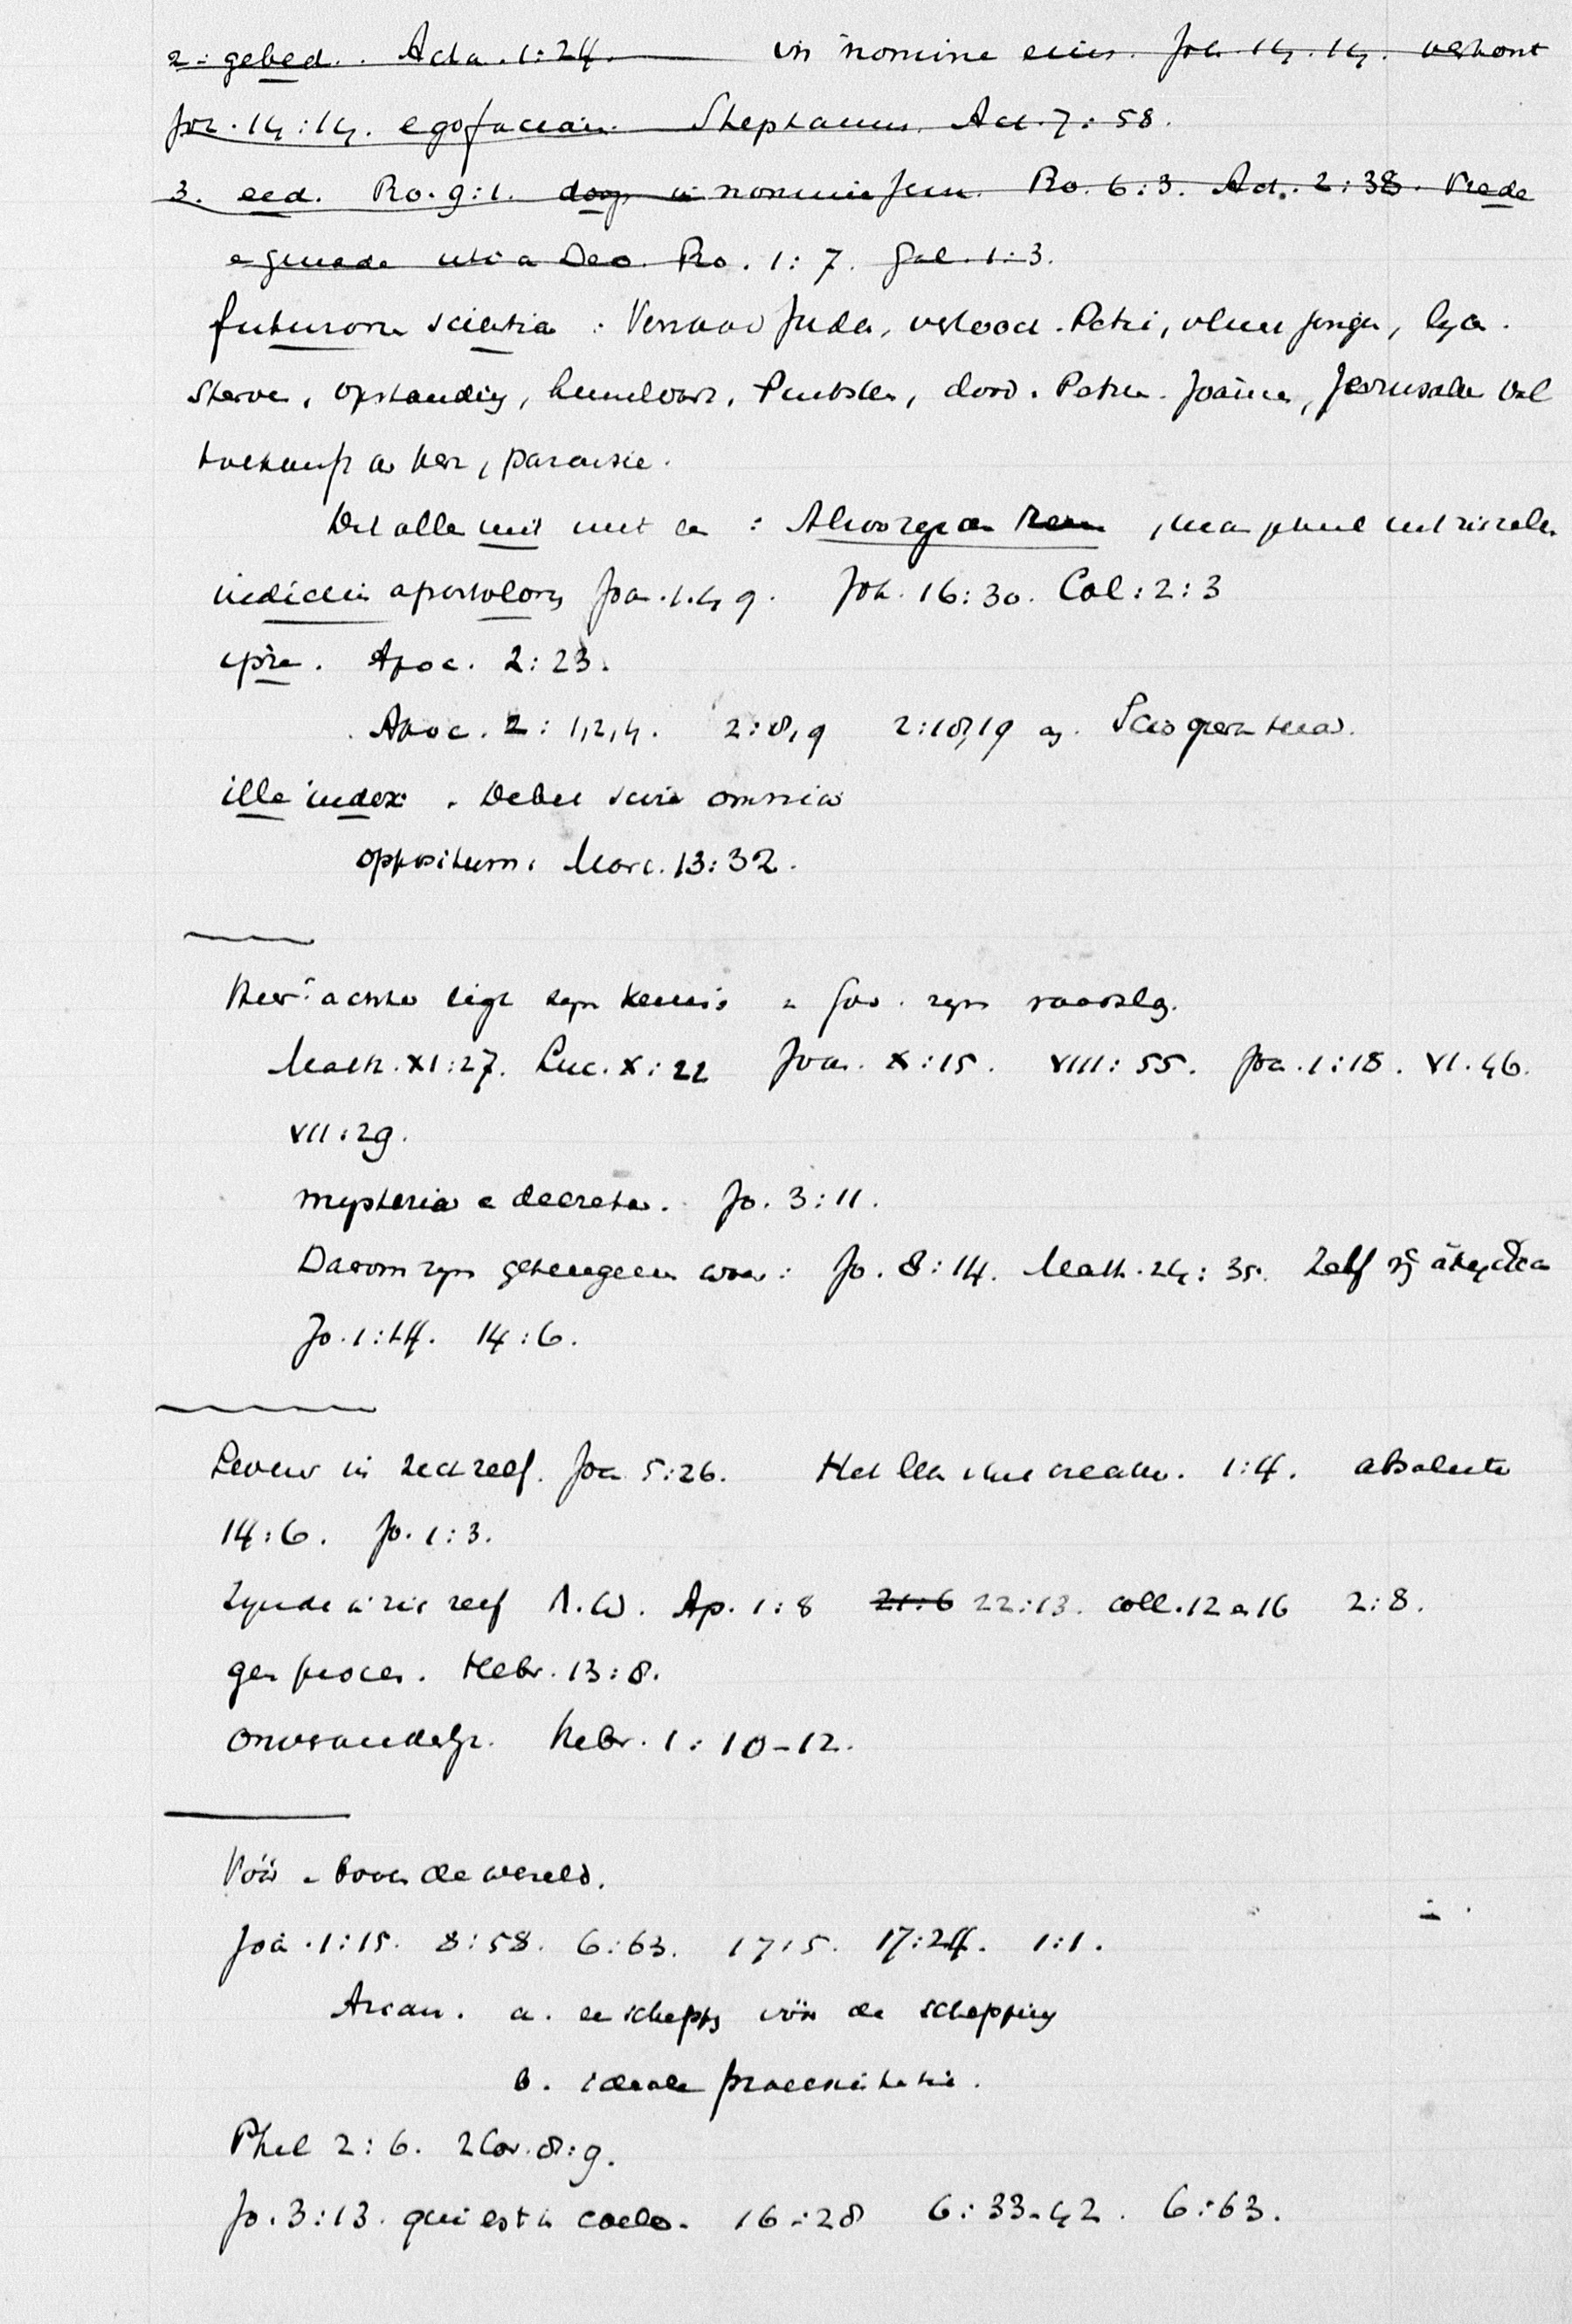 2. gebed. Acta. 1:24. in nomine eius. Joh. 14.14. verhoort
Joh. 14:14. ego faciam. Stephanus. Act. 7:58.
3. eed. Ro. 9:1. doop in nomine Jesu. Ro. 6:3. Act. 2:38. Vrede
e genade uti a Deo. Ro. 1:7. Gal. 1:3.
futurorum scientia: Verraad Juda, verlooch. Petri, jonger, lyden.
sterven, opstanding, hemelvaart, Pinksten, dood. Petrus. Joannes, Jeruzalem val
toekomst kerk, parousie.
Dit alles niet: Alwetend
iudicium apostolorum Joa. 1.49. Joh. 16:30. Col: 2:3
ipse. Apoc. 2:23.
Apoc. 2: 1,2,4. 2:8,9 2:18,19 Scio opera tua.
ille iudex. Debet scire omnia
oppositum. Marc. 13:32.
achter ligt zyn kennis God. zyn raadslag.
Math. XI:27. Luc. X:22 Joan. X:15. VIII:55. Joa. 1:18. VI.46.
VII:29.
mysteria e decreta. Jo. 3:11.
Daarom zyn getuigenis waar: Jo. 8:14. Math. 24:35. Zelf
Jo. 1:14. 14:6.
Leven in zichzelf. Joa 5:26. Het 1:4. absolute
14:6. Jo. 1:3.
Zynde in zich zelf Α.Ω. Ap. 1:8 21:6 22:13. coll. 12 e 16 2:8.
gen proces. Hebr. 13:8.
onveranderlyk. Hebr. 1:10-12.
Vóór e boven de wereld.
Joa. 1:15. 8:58. 6:63. 17:5. 17:24. 1:1.
Arian. a. schepping vóór de schepping
b. ideale praeexistentie.
Phil 2:6. 2 Cor. 8:9.
Jo. 3:13. qui est in coelo. 16:28 6:33-42. 6:63.